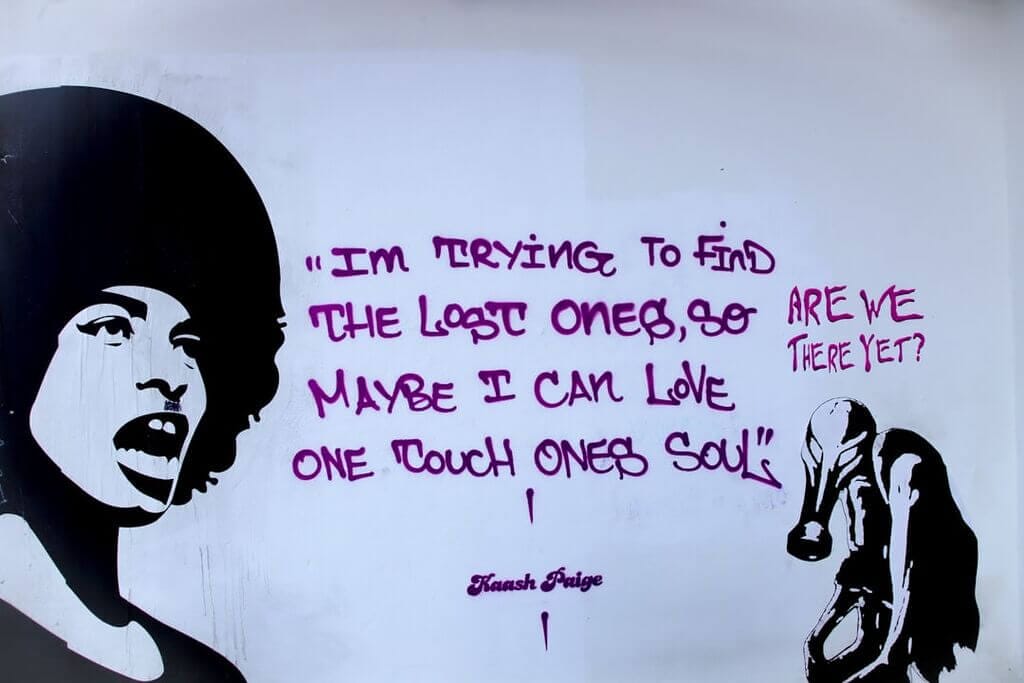 "IM TRYING TO FIND
THE LOST ONES, SO
MAYBE I CAN LOVE
ONE TOUCH ONES SOUL"
Kaash Paige
ARE WE
THERE YET?